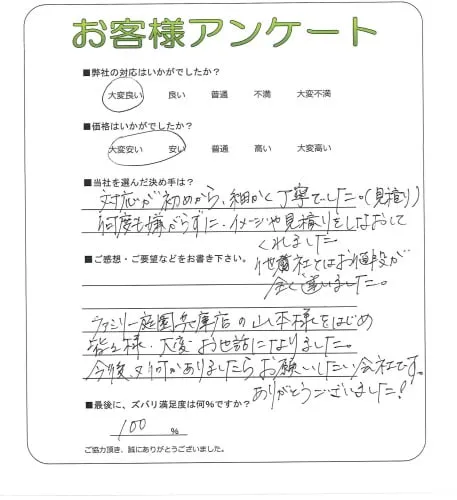 お客様アンケート
■弊社の対応はいかがでしたか？
大変良い 良い 普通 不満 大変不満
■価格はいかがでしたか？
大変安い 安い 普通 高い 大変高い
■当社を選んだ決め手は？
対応が初めから、細かく丁寧でした。(見積り)
何度も嫌がらずに、イメージや見積りをしなおして
くれました
他社とはお値段が
全く違いました。
■ご感想・ご要望などをお書き下さい。
ファミリー庭園兵庫店の山本様をはじめ
皆々様、大変お世話になりました。
今後又何かありましたらお願いしたい会社です。
ありがとうございました!
■最後に、ズバリ満足度は何%ですか？
100 %
ご協力頂き、誠にありがとうございました。